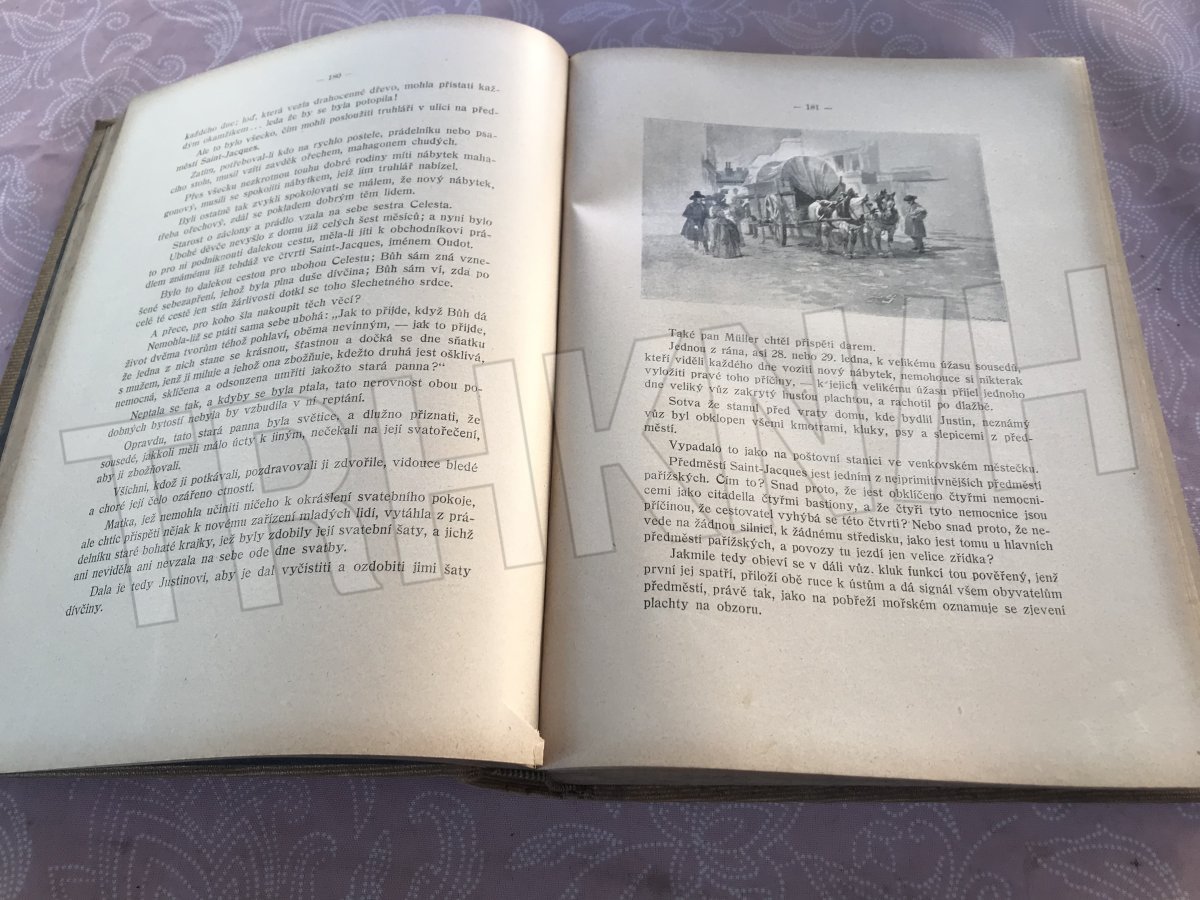 — 180 —
každého dne; loď, která vezla drahocenné dřevo, mohla přistati kaž-
dým okamžikem... leda že by se byla potopila!
Ale to bylo všecko, čím mohli posloužiti truhláři v ulici na před-
městí Saint-Jacques.
Zatím, potřeboval-li kdo na rychlo postele, prádelníku nebo psa-
cího stolu, musil vzíti zavděk ořechem, mahagonem chudých.
Přes všecku nezkrotnou touhu dobré rodiny míti nábytek maha-
gonový, musili se spokojiti nábytkem, jejž jim truhlář nabízel.
Byli ostatně tak zvyklí spokojovati se málem, že nový nábytek,
třeba ořechový, zdál se pokladem dobrým těm lidem.
Starost o záclony a prádlo vzala na sebe sestra Celesta.
Ubohé děvče nevyšlo z domu již celých šest měsíců; a nyní bylo
to pro ni podniknouti dalekou cestu, měla-li jíti k obchodníkovi prá-
dlem známému již tehdáž ve čtvrti Saint-Jacques, jménem Oudot.
Bylo to dalekou cestou pro ubohou Celestu; Bůh sám zná vzne-
šené sebezapření, jehož byla plna duše dívčina; Bůh sám ví, zda po
celé té cestě jen stín žárlivosti dotkl se toho šlechetného srdce.
A přece, pro koho šla nakoupit těch věcí?
Nemohla-liž se ptáti sama sebe ubohá: „Jak to přijde, když Bůh dá
život dvěma tvorům téhož pohlaví, oběma nevinným, — jak to přijde,
že jedna z nich stane se krásnou, šťastnou a dočká se dne sňatku
s mužem, jenž ji miluje a jehož ona zbožňuje, kdežto druhá jest ošklivá,
nemocná, sklíčena a odsouzena umříti jakožto stará panna?“
Neptala se tak, a kdyby se byla ptala, tato nerovnost obou po-
dobných bytostí nebyla by vzbudila v ní reptání.
Opravdu, tato stará panna byla světice, a dlužno přiznati, že
sousedé, jakkoli měli málo úcty k jiným, nečekali na její svatořečení,
aby ji zbožňovali.
Všichni, kdož ji potkávali, pozdravovali ji zdvořile, vidouce bledé
a choré její čelo ozářeno ctností.
Matka, jež nemohla učiniti ničeho k okrášlení svatebního pokoje,
ale chtíc přispěti nějak k novému zařízení mladých lidí, vytáhla z prá-
delníku staré bohaté krajky, jež byly zdobily její svatební šaty, a jichž
ani neviděla ani nevzala na sebe ode dne svatby.
Dala je tedy Justinovi, aby je dal vyčistiti a ozdobiti jimi šaty
dívčiny.
— 181 —
Také pan Müller chtěl přispěti darem.
Jednou z rána, asi 28. nebo 29. ledna, k velikému úžasu sousedů,
kteří viděli každého dne voziti nový nábytek, nemohouce si nikterak
vyložiti pravé toho příčiny, — k jejich velikému úžasu přijel jednoho
dne veliký vůz zakrytý hustou plachtou, a rachotil po dlažbě.
Sotva že stanul před vraty domu, kde bydlil Justin, neznámý
vůz byl obklopen všemi kmotrami, kluky, psy a slepicemi z před-
městí.
Vypadalo to jako na poštovní stanici ve venkovském městečku.
Předměstí Saint-Jacques jest jedním z nejprimitivnějších předměstí
pařížských. Čím to? Snad proto, že jest obklíčeno čtyřmi nemocni-
cemi jako citadella čtyřmi bastiony, a že čtyři tyto nemocnice jsou
příčinou, že cestovatel vyhýbá se této čtvrti? Nebo snad proto, že ne-
vede na žádnou silnici, k žádnému středisku, jako jest tomu u hlavních
předměstí pařížských, a povozy tu jezdí jen velice zřídka?
Jakmile tedy objeví se v dáli vůz. kluk funkcí tou pověřený, jenž
první jej spatří, přiloží obě ruce k ústům a dá signál všem obyvatelům
předměstí, právě tak, jako na pobřeží mořském oznamuje se zjevení
plachty na obzoru.
TRHKNIH